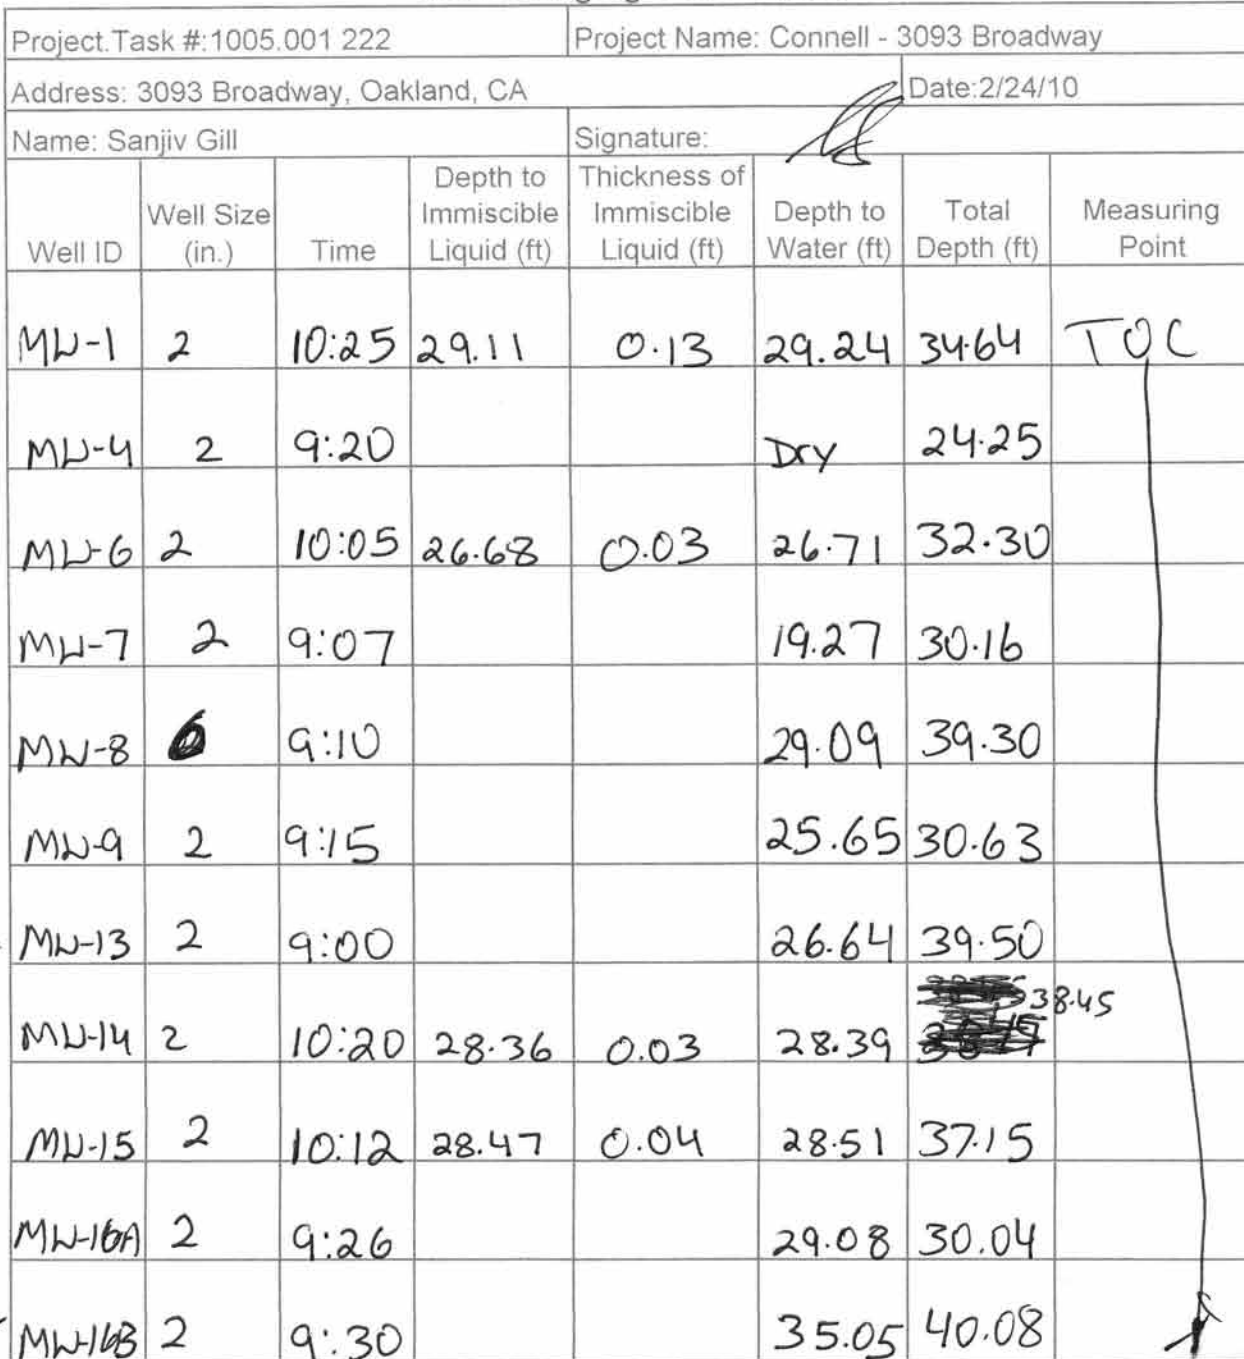 Project.Task #:1005.001 222 Project Name: Connell - 3093 Broadway
Address: 3093 Broadway, Oakland, CA Date:2/24/10
Name: Sanjiv Gill Signature:
Well ID Well Size (in.) Time Depth to Immiscible Liquid (ft) Thickness of Immiscible Liquid (ft) Depth to Water (ft) Total Depth (ft) Measuring Point
MW-1 2 10:25 29.11 0.13 29.24 34.64 TOC
MW-4 2 9:20 Dry 24.25
MW-6 2 10:05 26.68 0.03 26.71 32.30
MW-7 2 9:07 19.27 30.16
MW-8 6 9:10 29.09 39.30
MW-9 2 9:15 25.65 30.63
MW-13 2 9:00 26.64 39.50
MW-14 2 10:20 28.36 0.03 28.39 38.45
MW-15 2 10:12 28.47 0.04 28.51 37.15
MW-16A 2 9:26 29.08 30.04
MW-16B 2 9:30 35.05 40.08